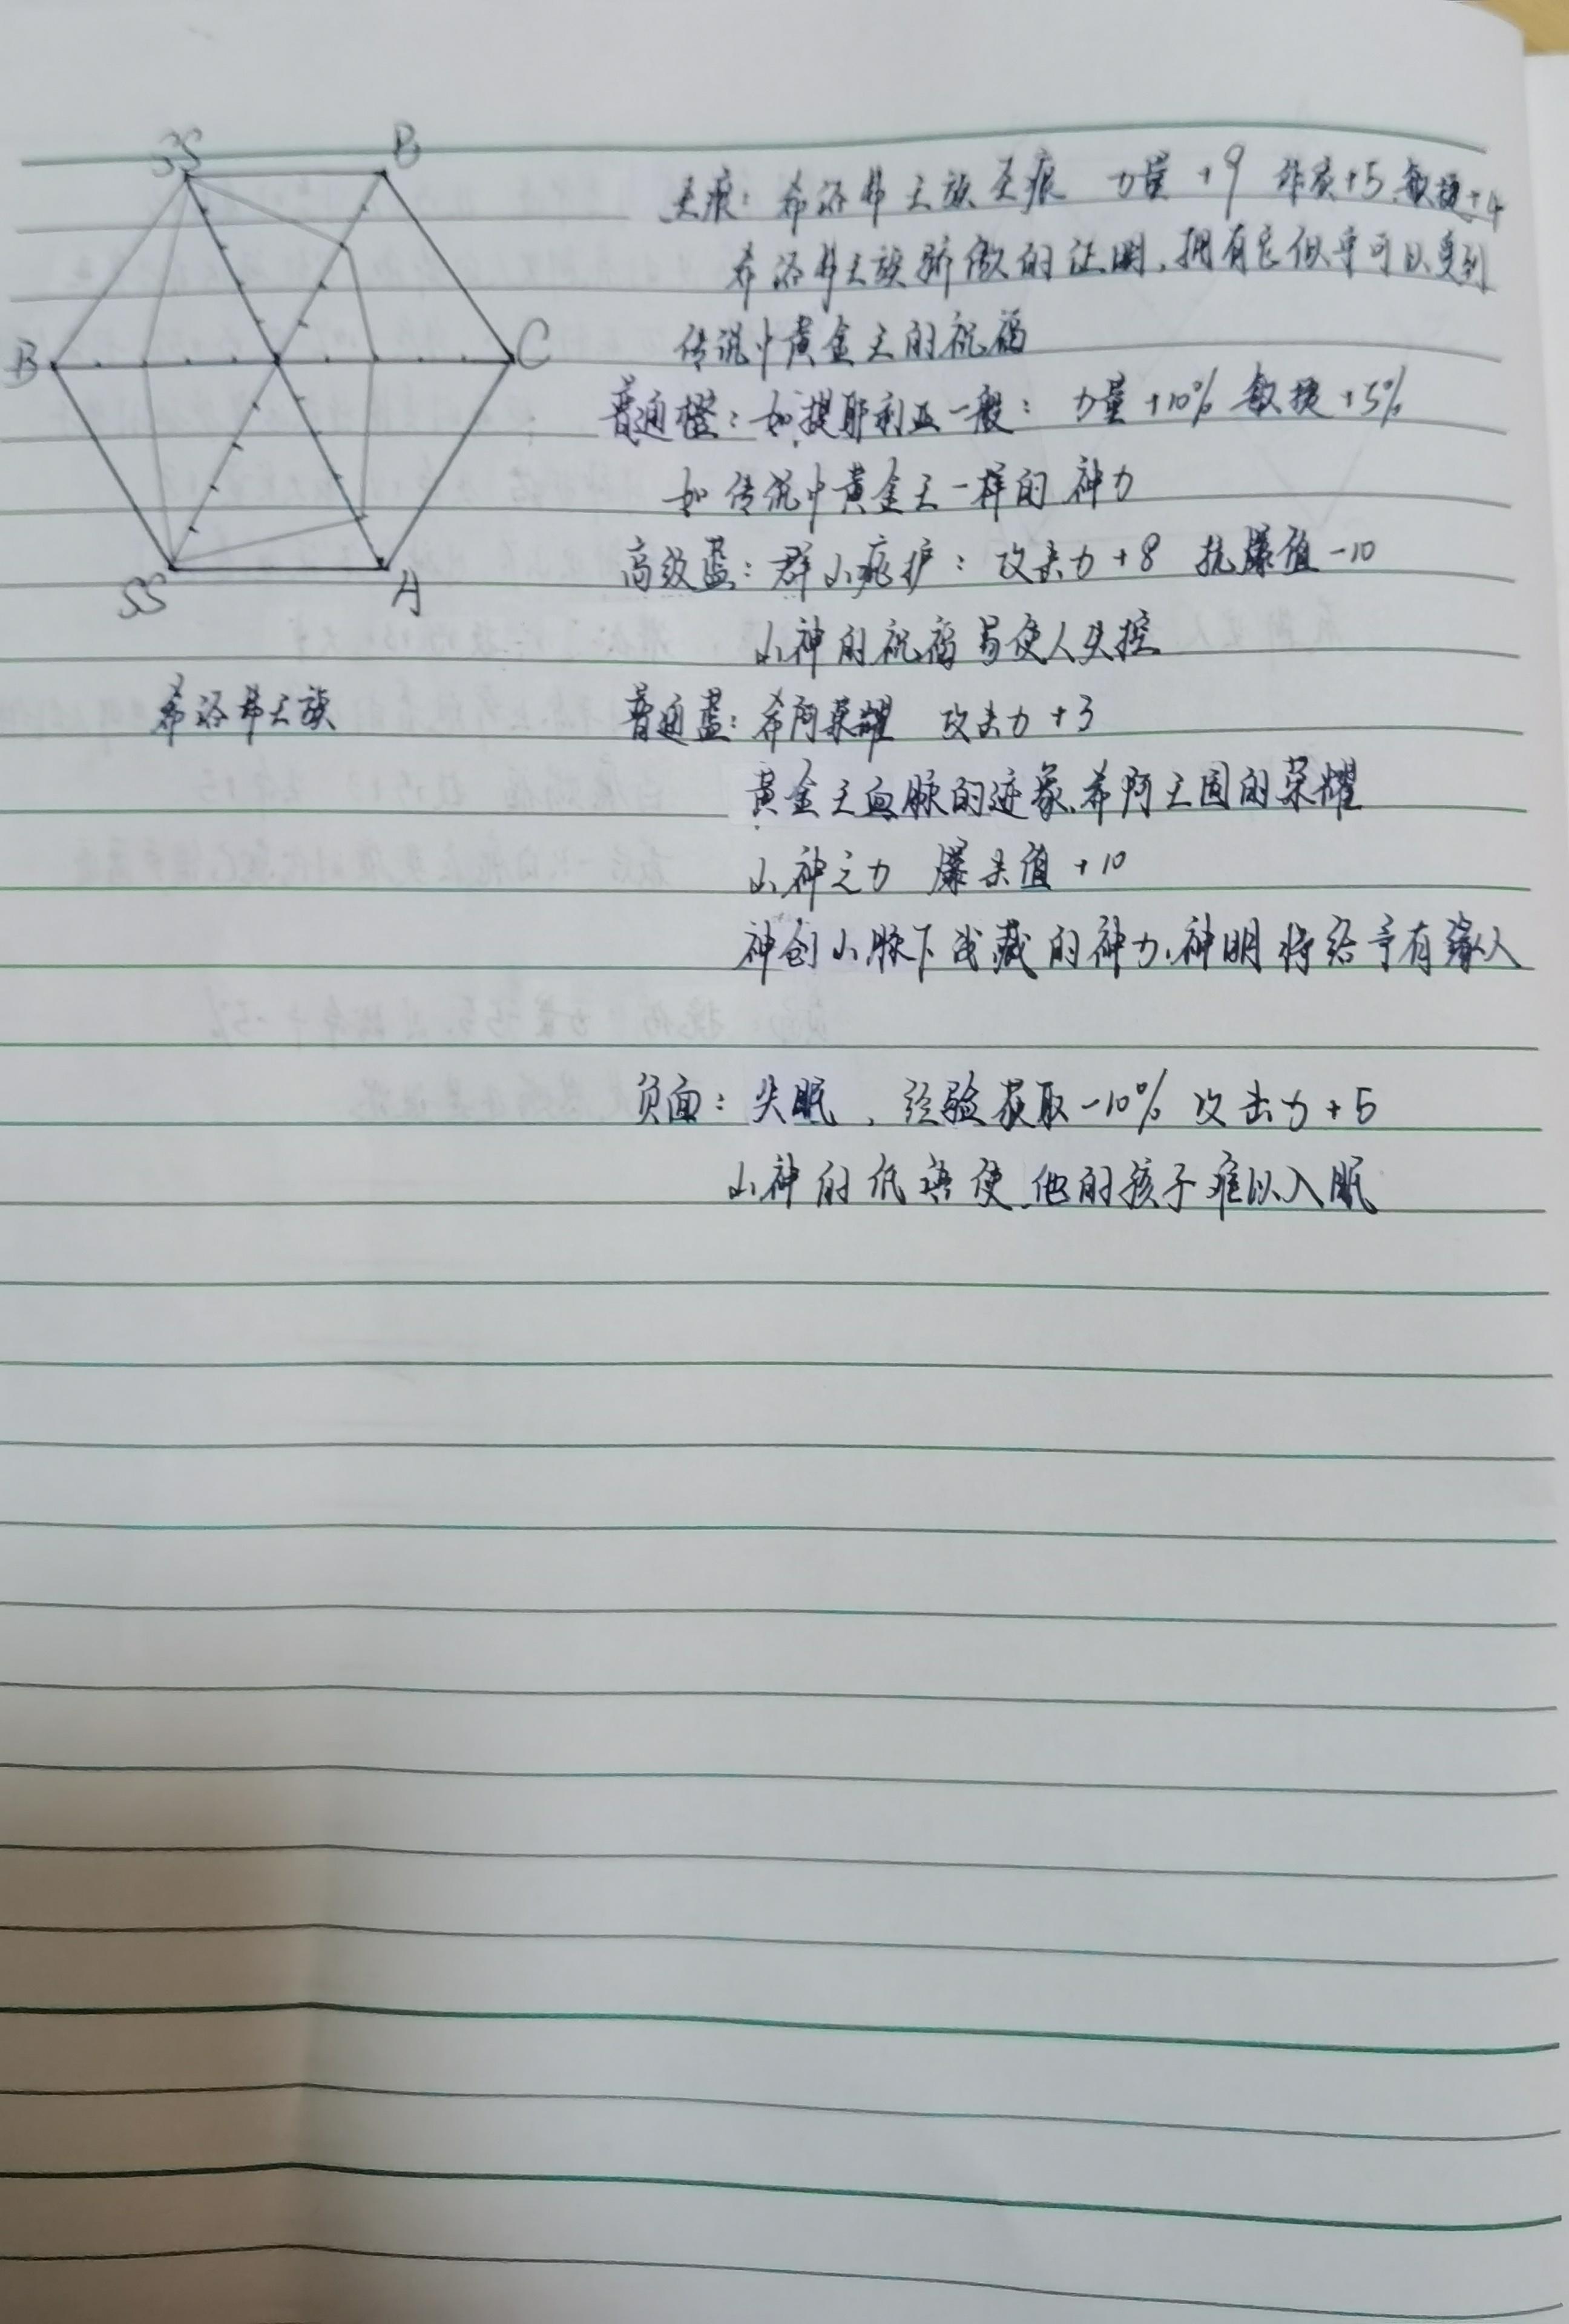 SS
B
B
C
SS
A
希洛弗王族
圣痕：希洛弗王族圣痕 力量+9 体质+5 敏捷+4
希洛弗王族骄傲的证明，拥有它似乎可以受到
传说中黄金王的祝福
普通橙：如提耶利亚一般：力量+10% 敏捷+5%
如传说中黄金王一样的神力
高级蓝：群山庇护：攻击力+8 抗爆值-10
山神的祝福易使人失控
普通蓝：希阿荣耀 攻击力+3
黄金王血脉的迹象，希阿王国的荣耀
山神之力 爆击值+10
神创山脉下浅藏的神力，神明将给予有缘人
负面：失眠，经验获取-10% 攻击力+5
山神的低语使他的孩子难以入眠